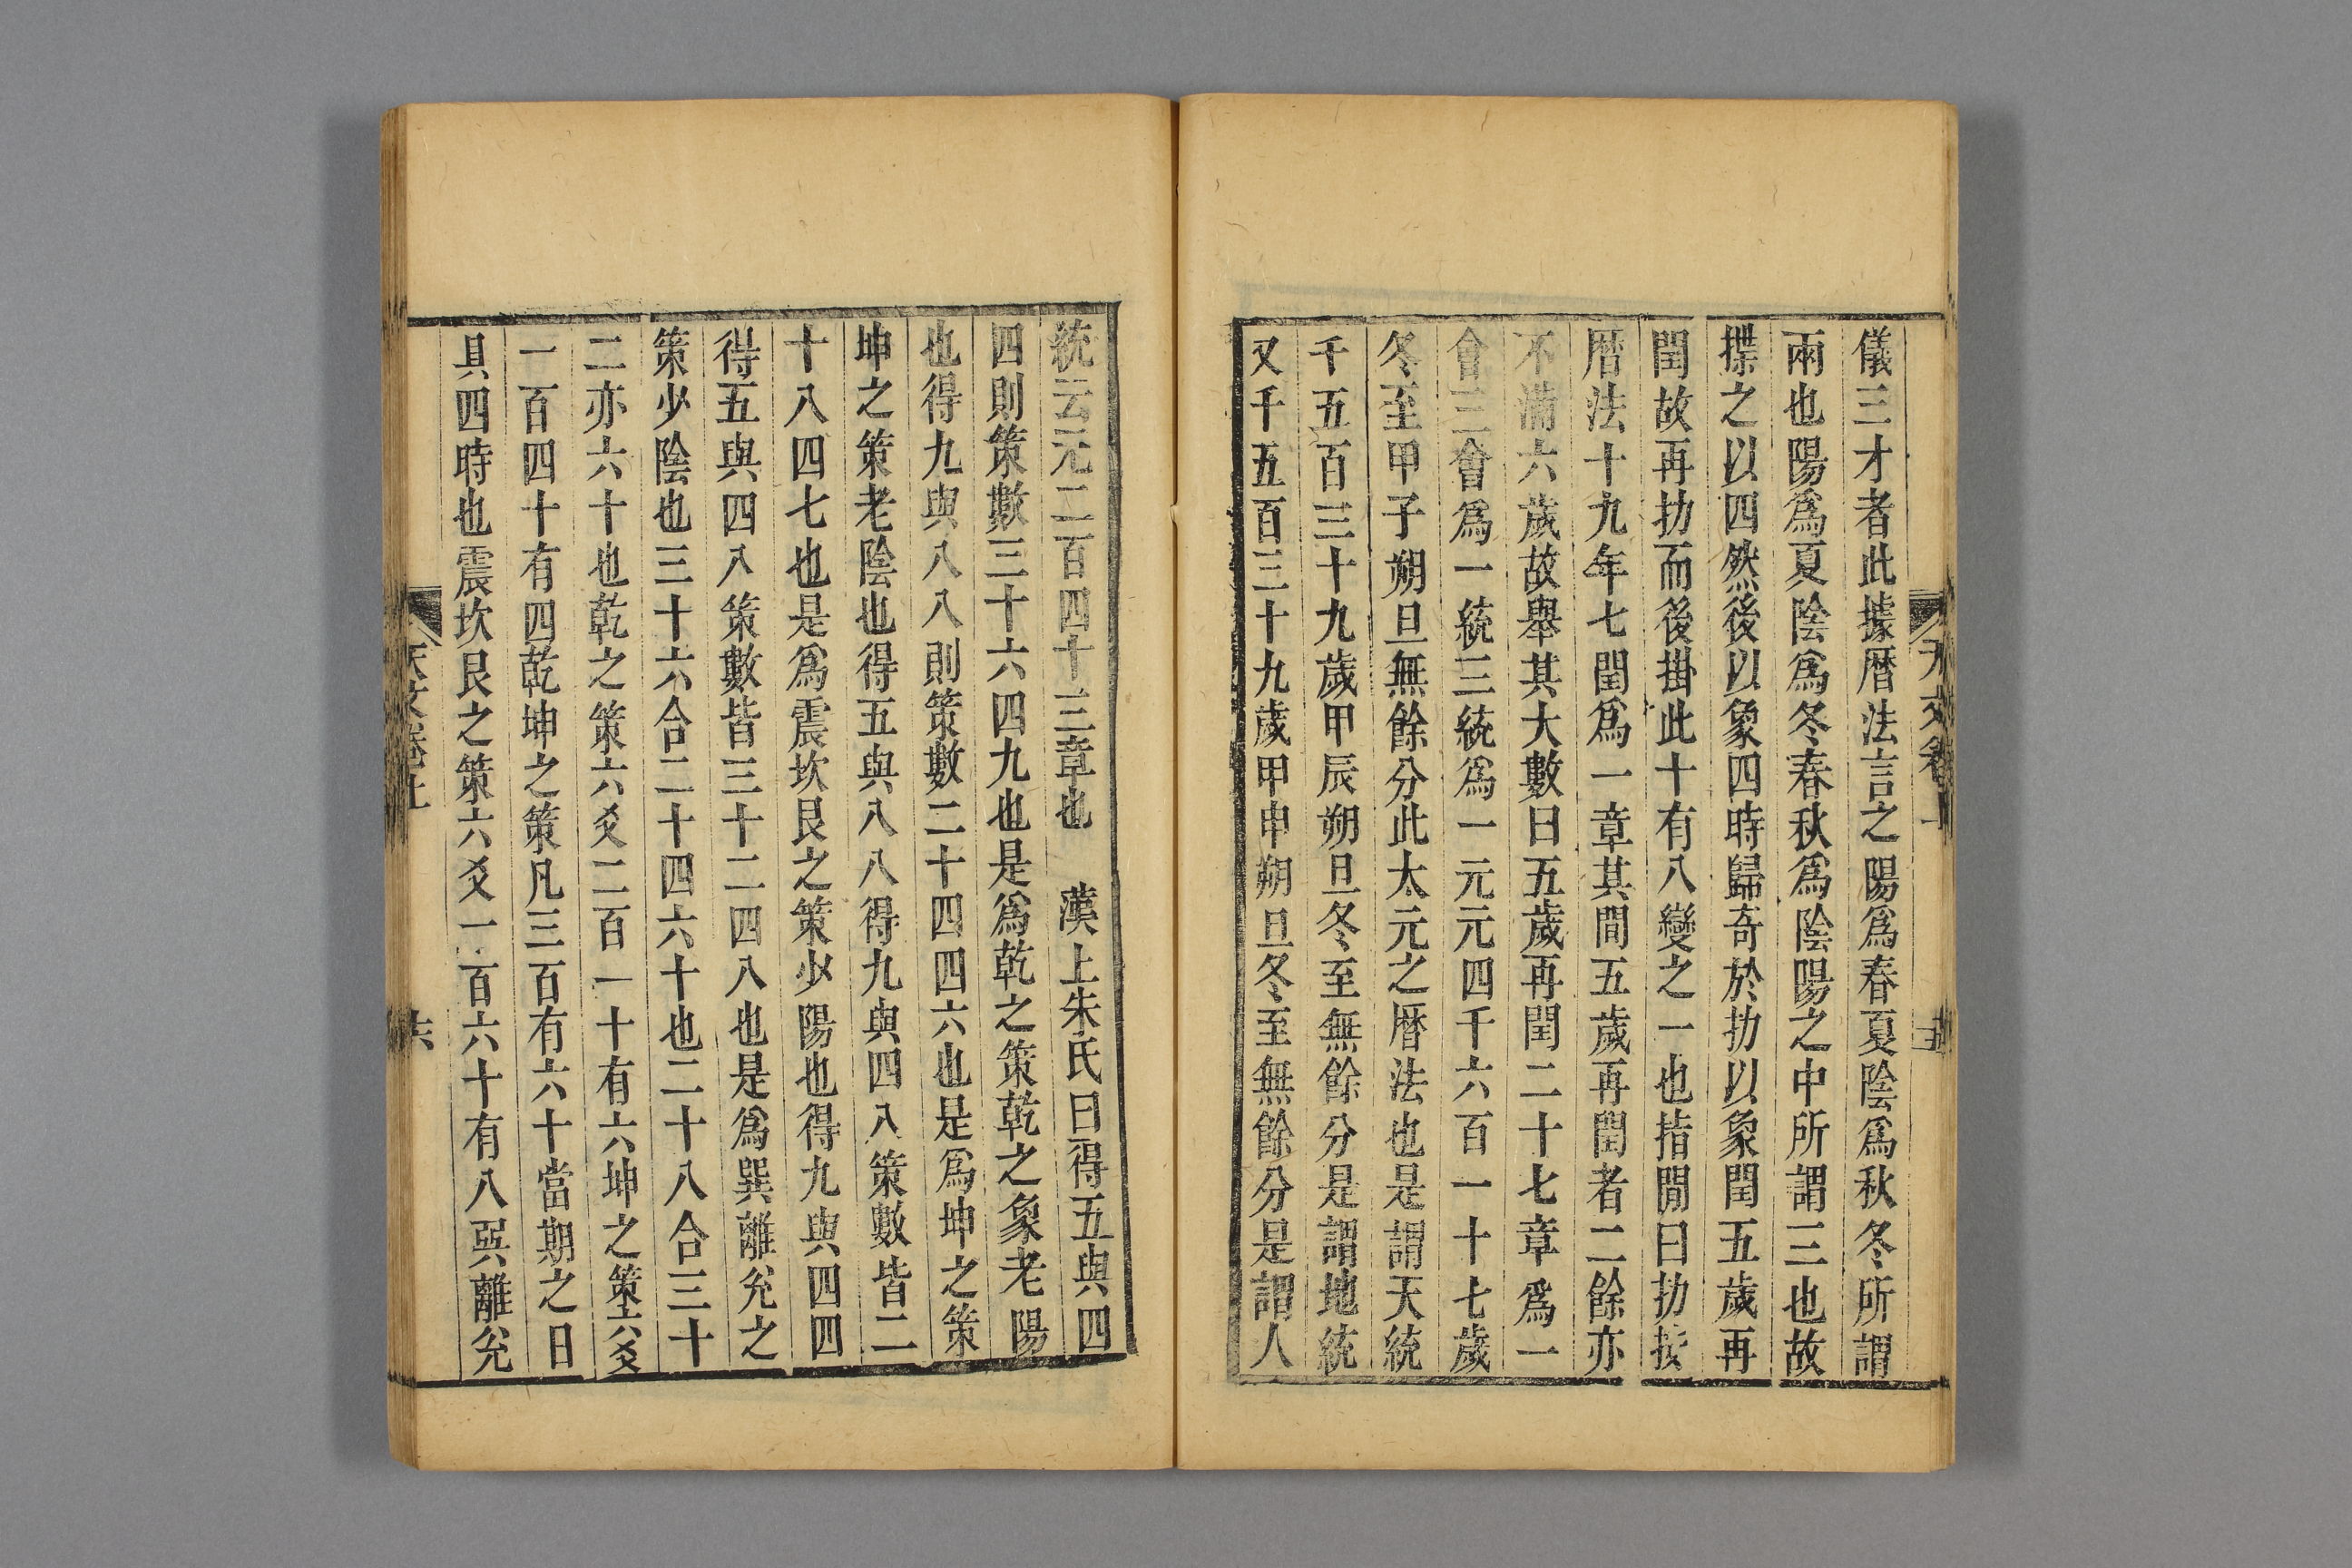 儀三才者此據暦法言之陽爲春夏陰爲秋冬所謂
兩也陽爲夏陰爲冬春秋爲陰陽之中所謂三也故
揲之以四然後以象四時歸奇於扐以象閏五歲再
閏故再扐而後掛此十有八變之一也指閒曰扐按
暦法十九年七閏爲一章其間五歲再閏者二餘亦
不滿六歲故舉其大數曰五歲再閏二十七章爲一
會三會爲一統三統爲一元元四千六百一十七歲
冬至甲子朔旦無餘分此太元之暦法也是謂天統
千五百三十九歲甲辰朔旦冬至無餘分是謂地統
又千五百三十九歲甲申朔旦冬至無餘分是謂人
統云元二百四十三章也　漢上朱氏曰得五與四
四則策數三十六四九也是爲乾之策乾之象老陽
也得九與八八則策數二十四四六也是爲坤之策
坤之策老陰也得五與八八得九與四八策數皆二
十八四七也是爲震坎艮之策少陽也得九與四四
得五與四八策數皆三十二四八也是爲巽離兊之
策少陰也三十六合二十四六十也二十八合三十
二亦六十也乾之策六爻二百一十有六坤之策六爻
一百四十有四乾坤之策凡三百有六十當期之日
具四時也震坎艮之策六爻一百六十有八巽離兊
天文卷上
六